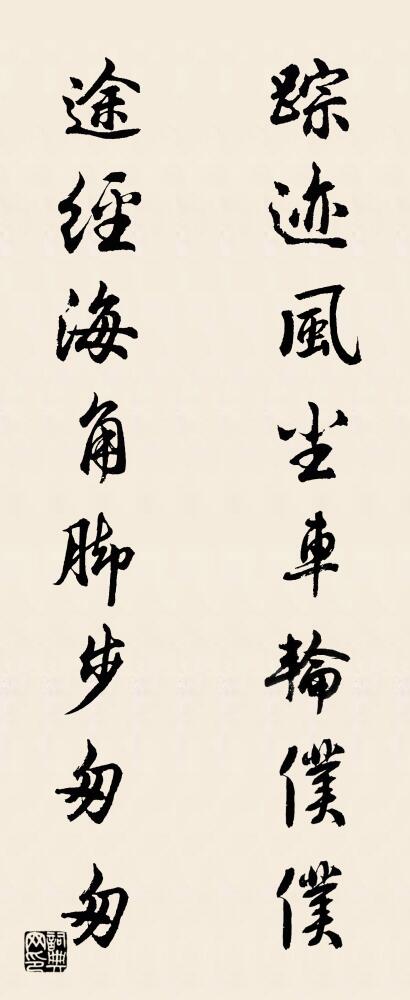 踪迹風尘車輪僕僕
途經海角脚步匆匆
詞典網印